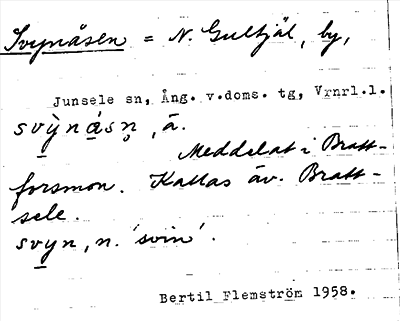 Svynåsen = N. Gulsjäl, by,
Junsele sn, Ång. v.doms. tg, Vrnrl.l.
svỳ̠nása̠sn̥, ä.
Meddelat i Bratt-
forsmon. Kallas äv. Bratt-
sele.
svy̠n, n. 'svin'.
Bertil Flemström 1958.